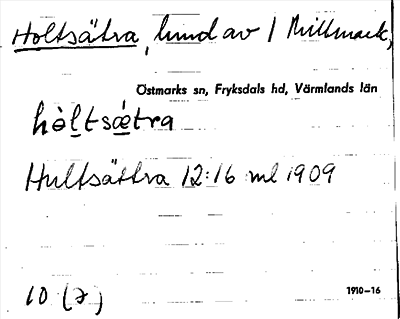 Holtsätra, lund av / Millmark,
Östmarks sn, Fryksdals hd, Värmlands län
hòḻtsǽtra
Hultsättra 12:16 ml 1909
10 (7)
1910–16